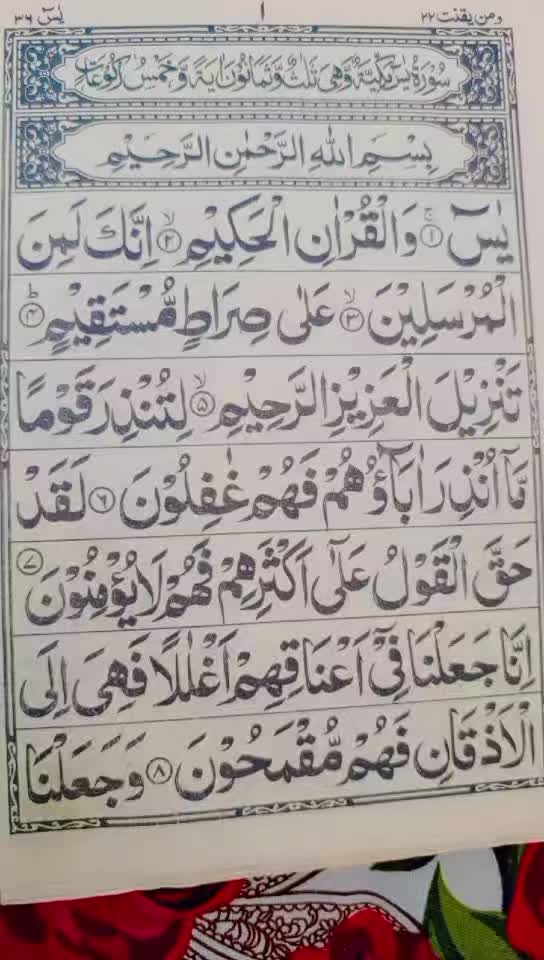 ومن یقنت ۲۲ ۱ یٰسٓ ۳۶
سُوْرَةُ یٰسٓ مَكِّیَّةٌ وَّهِیَ ثَلٰثٌ وَّثَمَانُوْنَ اٰیَةً وَّخَمْسُ رُكُوْعَاتٍ
بِسْمِ اللّٰهِ الرَّحْمٰنِ الرَّحِیْمِ
یٰسٓ ۚ‏﴿۱﴾ وَالْقُرْاٰنِ الْحَكِیْمِ ۙ‏﴿۲﴾ اِنَّكَ لَمِنَ
الْمُرْسَلِیْنَ ۙ‏﴿۳﴾ عَلٰی صِرَاطٍ مُّسْتَقِیْمٍ ؕ‏﴿۴﴾
تَنْزِیْلَ الْعَزِیْزِ الرَّحِیْمِ ۙ‏﴿۵﴾ لِتُنْذِرَ قَوْمًا
مَّاۤ اُنْذِرَ اٰبَآؤُهُمْ فَهُمْ غٰفِلُوْنَ ﴿۶﴾ لَقَدْ
حَقَّ الْقَوْلُ عَلٰۤی اَكْثَرِهِمْ فَهُمْ لَا یُؤْمِنُوْنَ ﴿۷﴾
اِنَّا جَعَلْنَا فِیْۤ اَعْنَاقِهِمْ اَغْلٰلًا فَهِیَ اِلَی
الْاَذْقَانِ فَهُمْ مُّقْمَحُوْنَ ﴿۸﴾ وَجَعَلْنَا